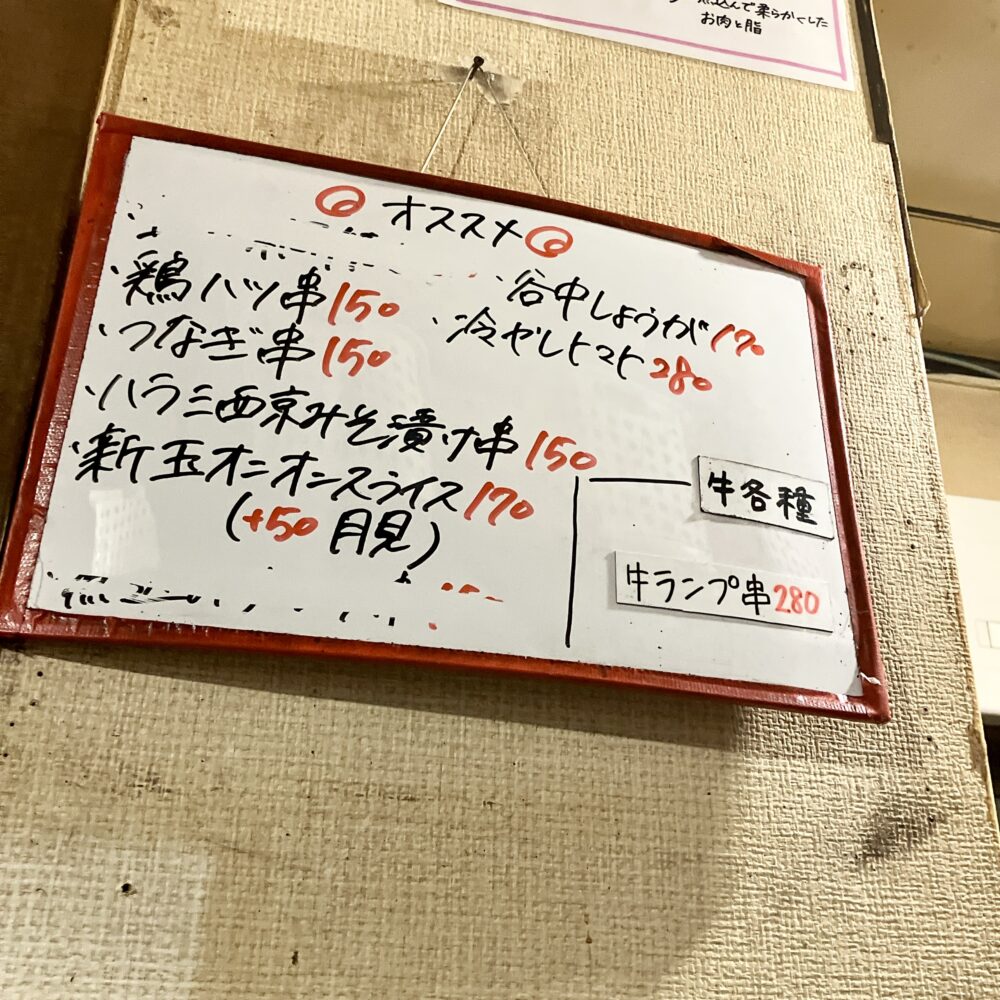 込んで柔らかくした
お肉と脂
オススメ
・鶏ハツ串150
・つなぎ串150
・ハラミ西京みそ漬け串150
・新玉オニオンスライス170
(+50 月見)
・谷中しょうが170
・冷やしトマト280
牛各種
牛ランプ串280